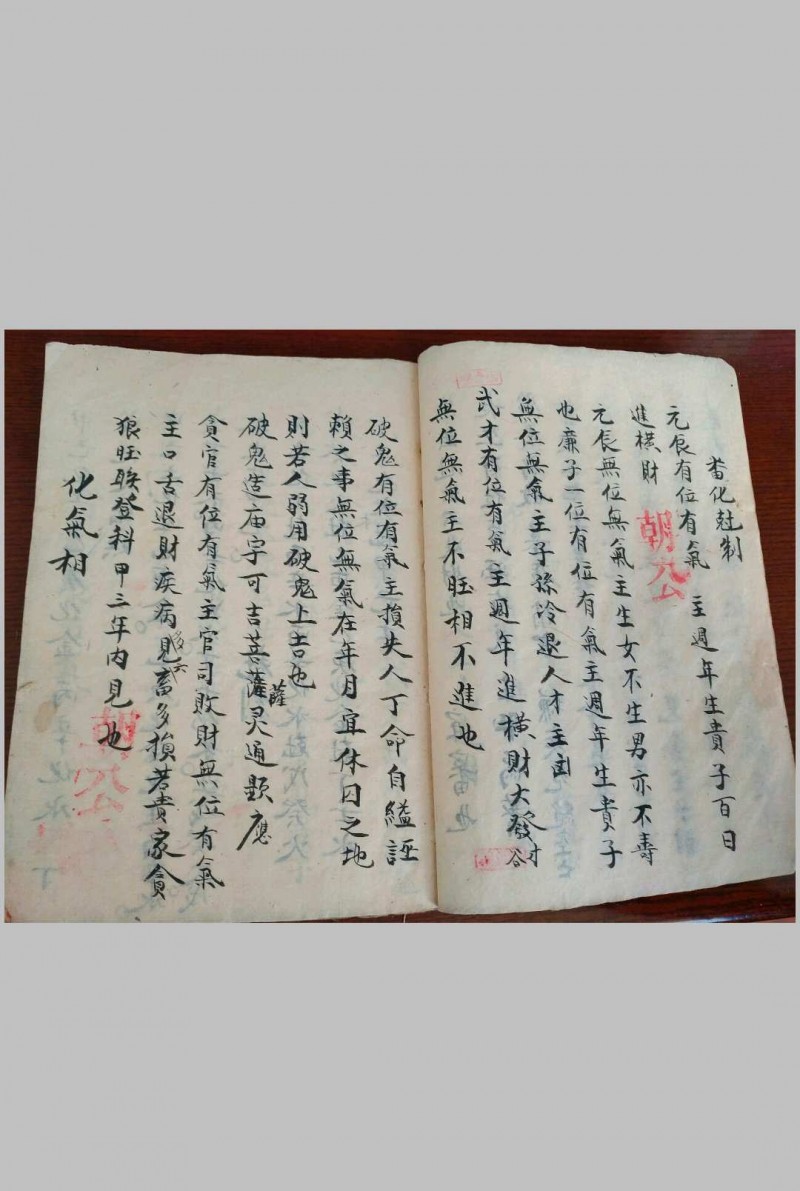 畨化尅制
元辰有位有氣 主週年生貴子百日
進橫財
元辰無位無氣主生女不生男亦不壽
也廉子一位有位有氣主週年生貴子
無位無氣主子孫冷退人才主囬
武才有位有氣主週年進橫財大發
無位無氣主不旺相不進也
破鬼有位有氣主損失人丁命自縊誣
賴之事無位無氣在年月宜休囚之地
則若人弱用破鬼上吉也
破鬼造庙字可吉菩薩灵通顕應
薩
貪官有位有氣主官司敗財無位有氣
主口舌退財疾病見畜多損若貴家貪
狼旺联登科甲三年内見也
化氣相
朝公